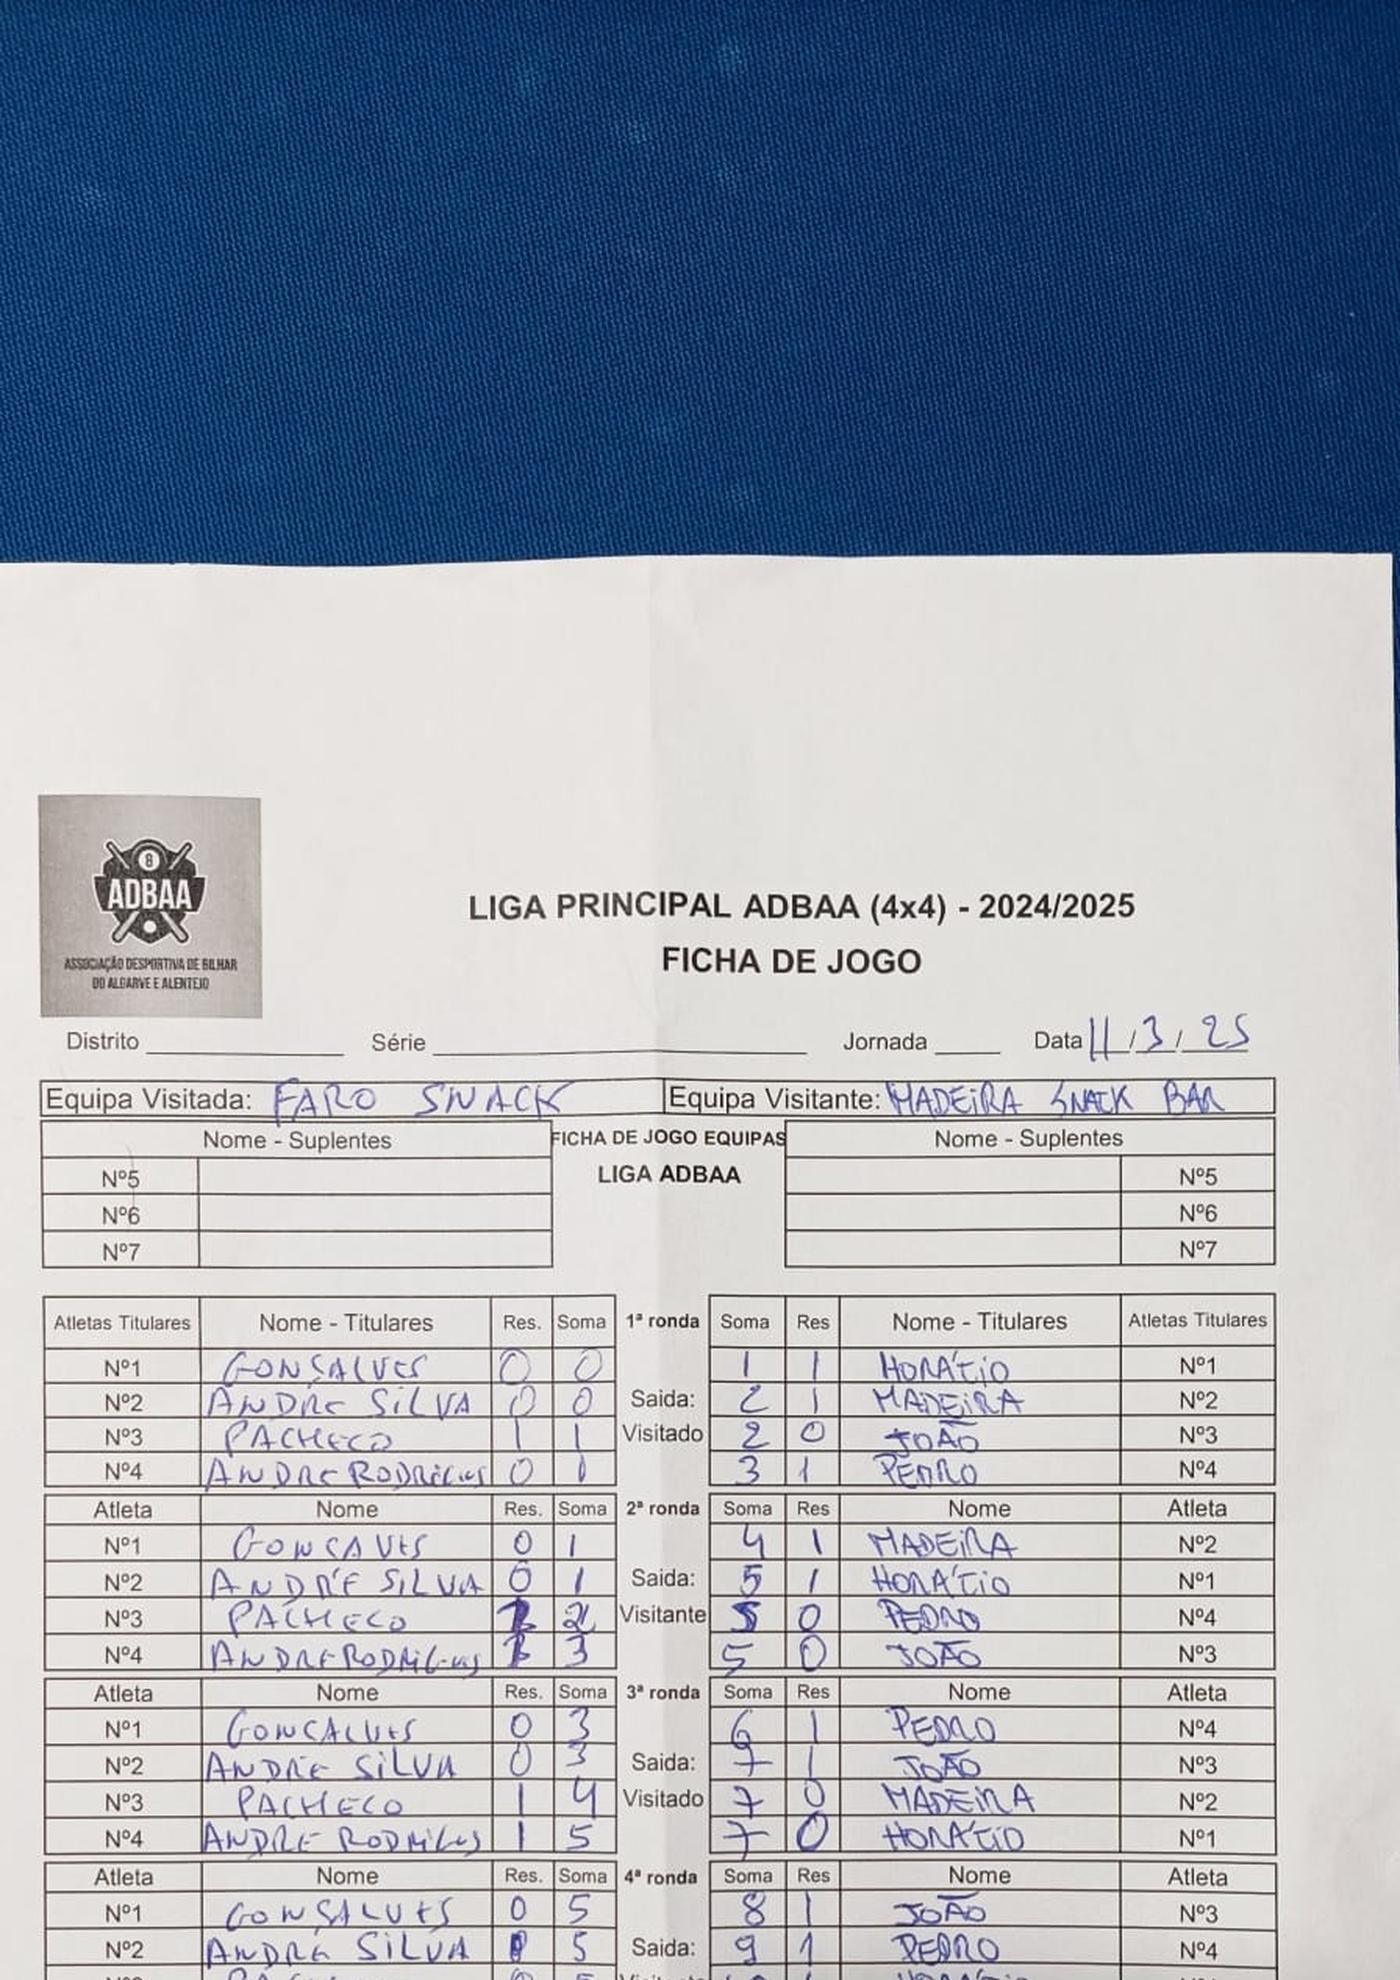 8
ADBAA
ASSOCIAÇÃO DESPORTIVA DE BILHAR
DO ALGARVE E ALENTEJO
LIGA PRINCIPAL ADBAA (4x4) - 2024/2025
FICHA DE JOGO
Distrito Série Jornada Data 11/3/25
Equipa Visitada: FARO SNACK Equipa Visitante: MADEIRA SNACK BAR
Nome - Suplentes FICHA DE JOGO EQUIPAS Nome - Suplentes
LIGA ADBAA
Nº5 Nº5
Nº6 Nº6
Nº7 Nº7
Atletas Titulares Nome - Titulares Res. Soma 1ª ronda Soma Res Nome - Titulares Atletas Titulares
Nº1 GONSALVES 0 0 1 1 HORÁTIO Nº1
Nº2 ANDRE SILVA 0 0 Saida: 2 1 MADEIRA Nº2
Nº3 PACHECO 1 1 Visitado 2 0 JOÃO Nº3
Nº4 ANDRE RODRIGUES 0 1 3 1 PEDRO Nº4
Atleta Nome Res. Soma 2ª ronda Soma Res Nome Atleta
Nº1 GONCAVES 0 1 4 1 MADEIRA Nº2
Nº2 ANDRÉ SILVA 0 1 Saida: 5 1 HORÁTIO Nº1
Nº3 PACHECO 2 Visitante 5 0 PEDRO Nº4
Nº4 ANDRE RODRIGUES 3 5 0 JOÃO Nº3
Atleta Nome Res. Soma 3ª ronda Soma Res Nome Atleta
Nº1 GONCALVES 0 3 6 1 PEDRO Nº4
Nº2 ANDRE SILVA 0 3 Saida: 7 1 JOÃO Nº3
Nº3 PACHECO 1 4 Visitado 7 0 MADEIRA Nº2
Nº4 ANDRE RODRIGUES 1 5 7 0 HORÁTIO Nº1
Atleta Nome Res. Soma 4ª ronda Soma Res Nome Atleta
Nº1 GONSALVES 0 5 8 1 JOÃO Nº3
Nº2 ANDRE SILVA 5 Saida: 9 1 PEDRO Nº4